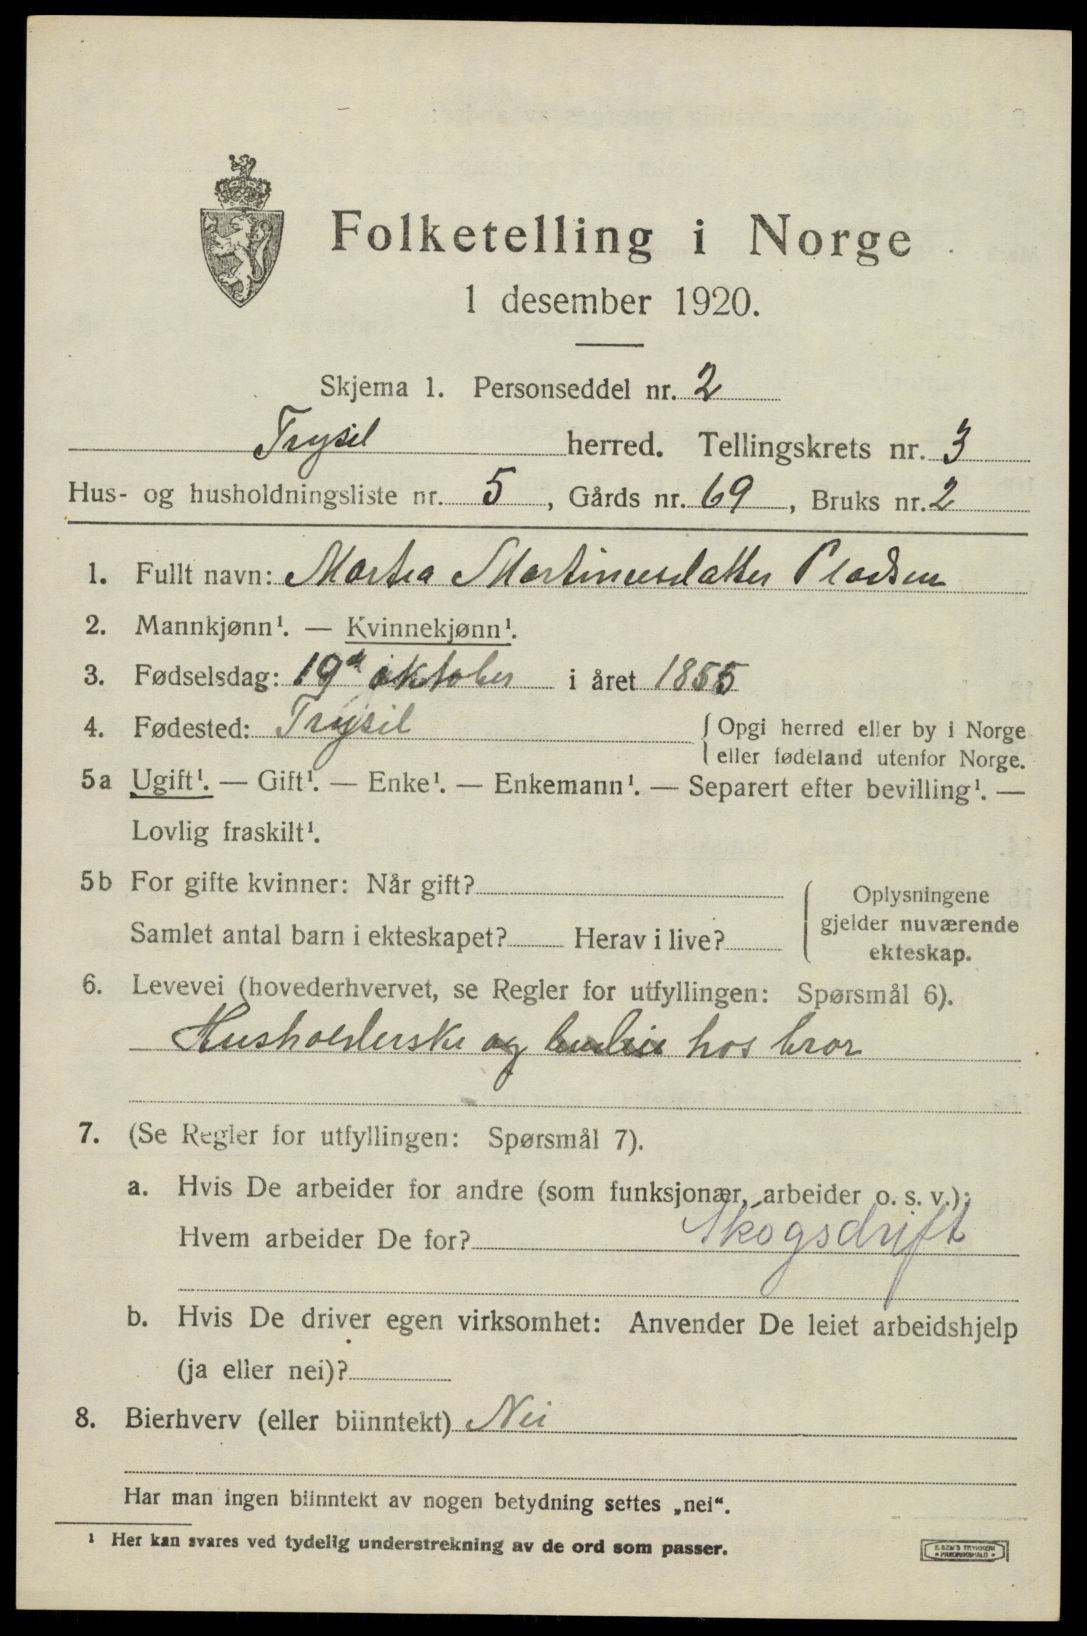 Folketelling i Norge
1 desember 1920.
Skjema 1. Personseddel nr. 2
Trysil herred. Tellingskrets nr. 3
Hus- og husholdningsliste nr. 5, Gårds nr. 69, Bruks nr. 2
1. Fullt navn: Martea Martinusdatter Pladsen
2. Mannkjønn¹. — Kvinnekjønn¹.
3. Fødselsdag: 19de oktober i året 1855
4. Fødested: Trysil { Opgi herred eller by i Norge
eller fødeland utenfor Norge.
5a Ugift¹. — Gift¹. — Enke¹. — Enkemann¹. — Separert efter bevilling¹. —
Lovlig fraskilt¹.
5b For gifte kvinner: Når gift?
Samlet antal barn i ekteskapet? Herav i live?
Oplysningene
gjelder nuværende
ekteskap.
6. Levevei (hovederhvervet, se Regler for utfyllingen: Spørsmål 6).
Husholderske og hos bror
7. (Se Regler for utfyllingen: Spørsmål 7).
a. Hvis De arbeider for andre (som funksjonær, arbeider o. s. v.):
Hvem arbeider De for? Skogsdrift
b. Hvis De driver egen virksomhet: Anvender De leiet arbeidshjelp
(ja eller nei)?
8. Bierhverv (eller biinntekt) Nei
Har man ingen biinntekt av nogen betydning settes „nei“.
¹ Her kan svares ved tydelig understrekning av de ord som passer.